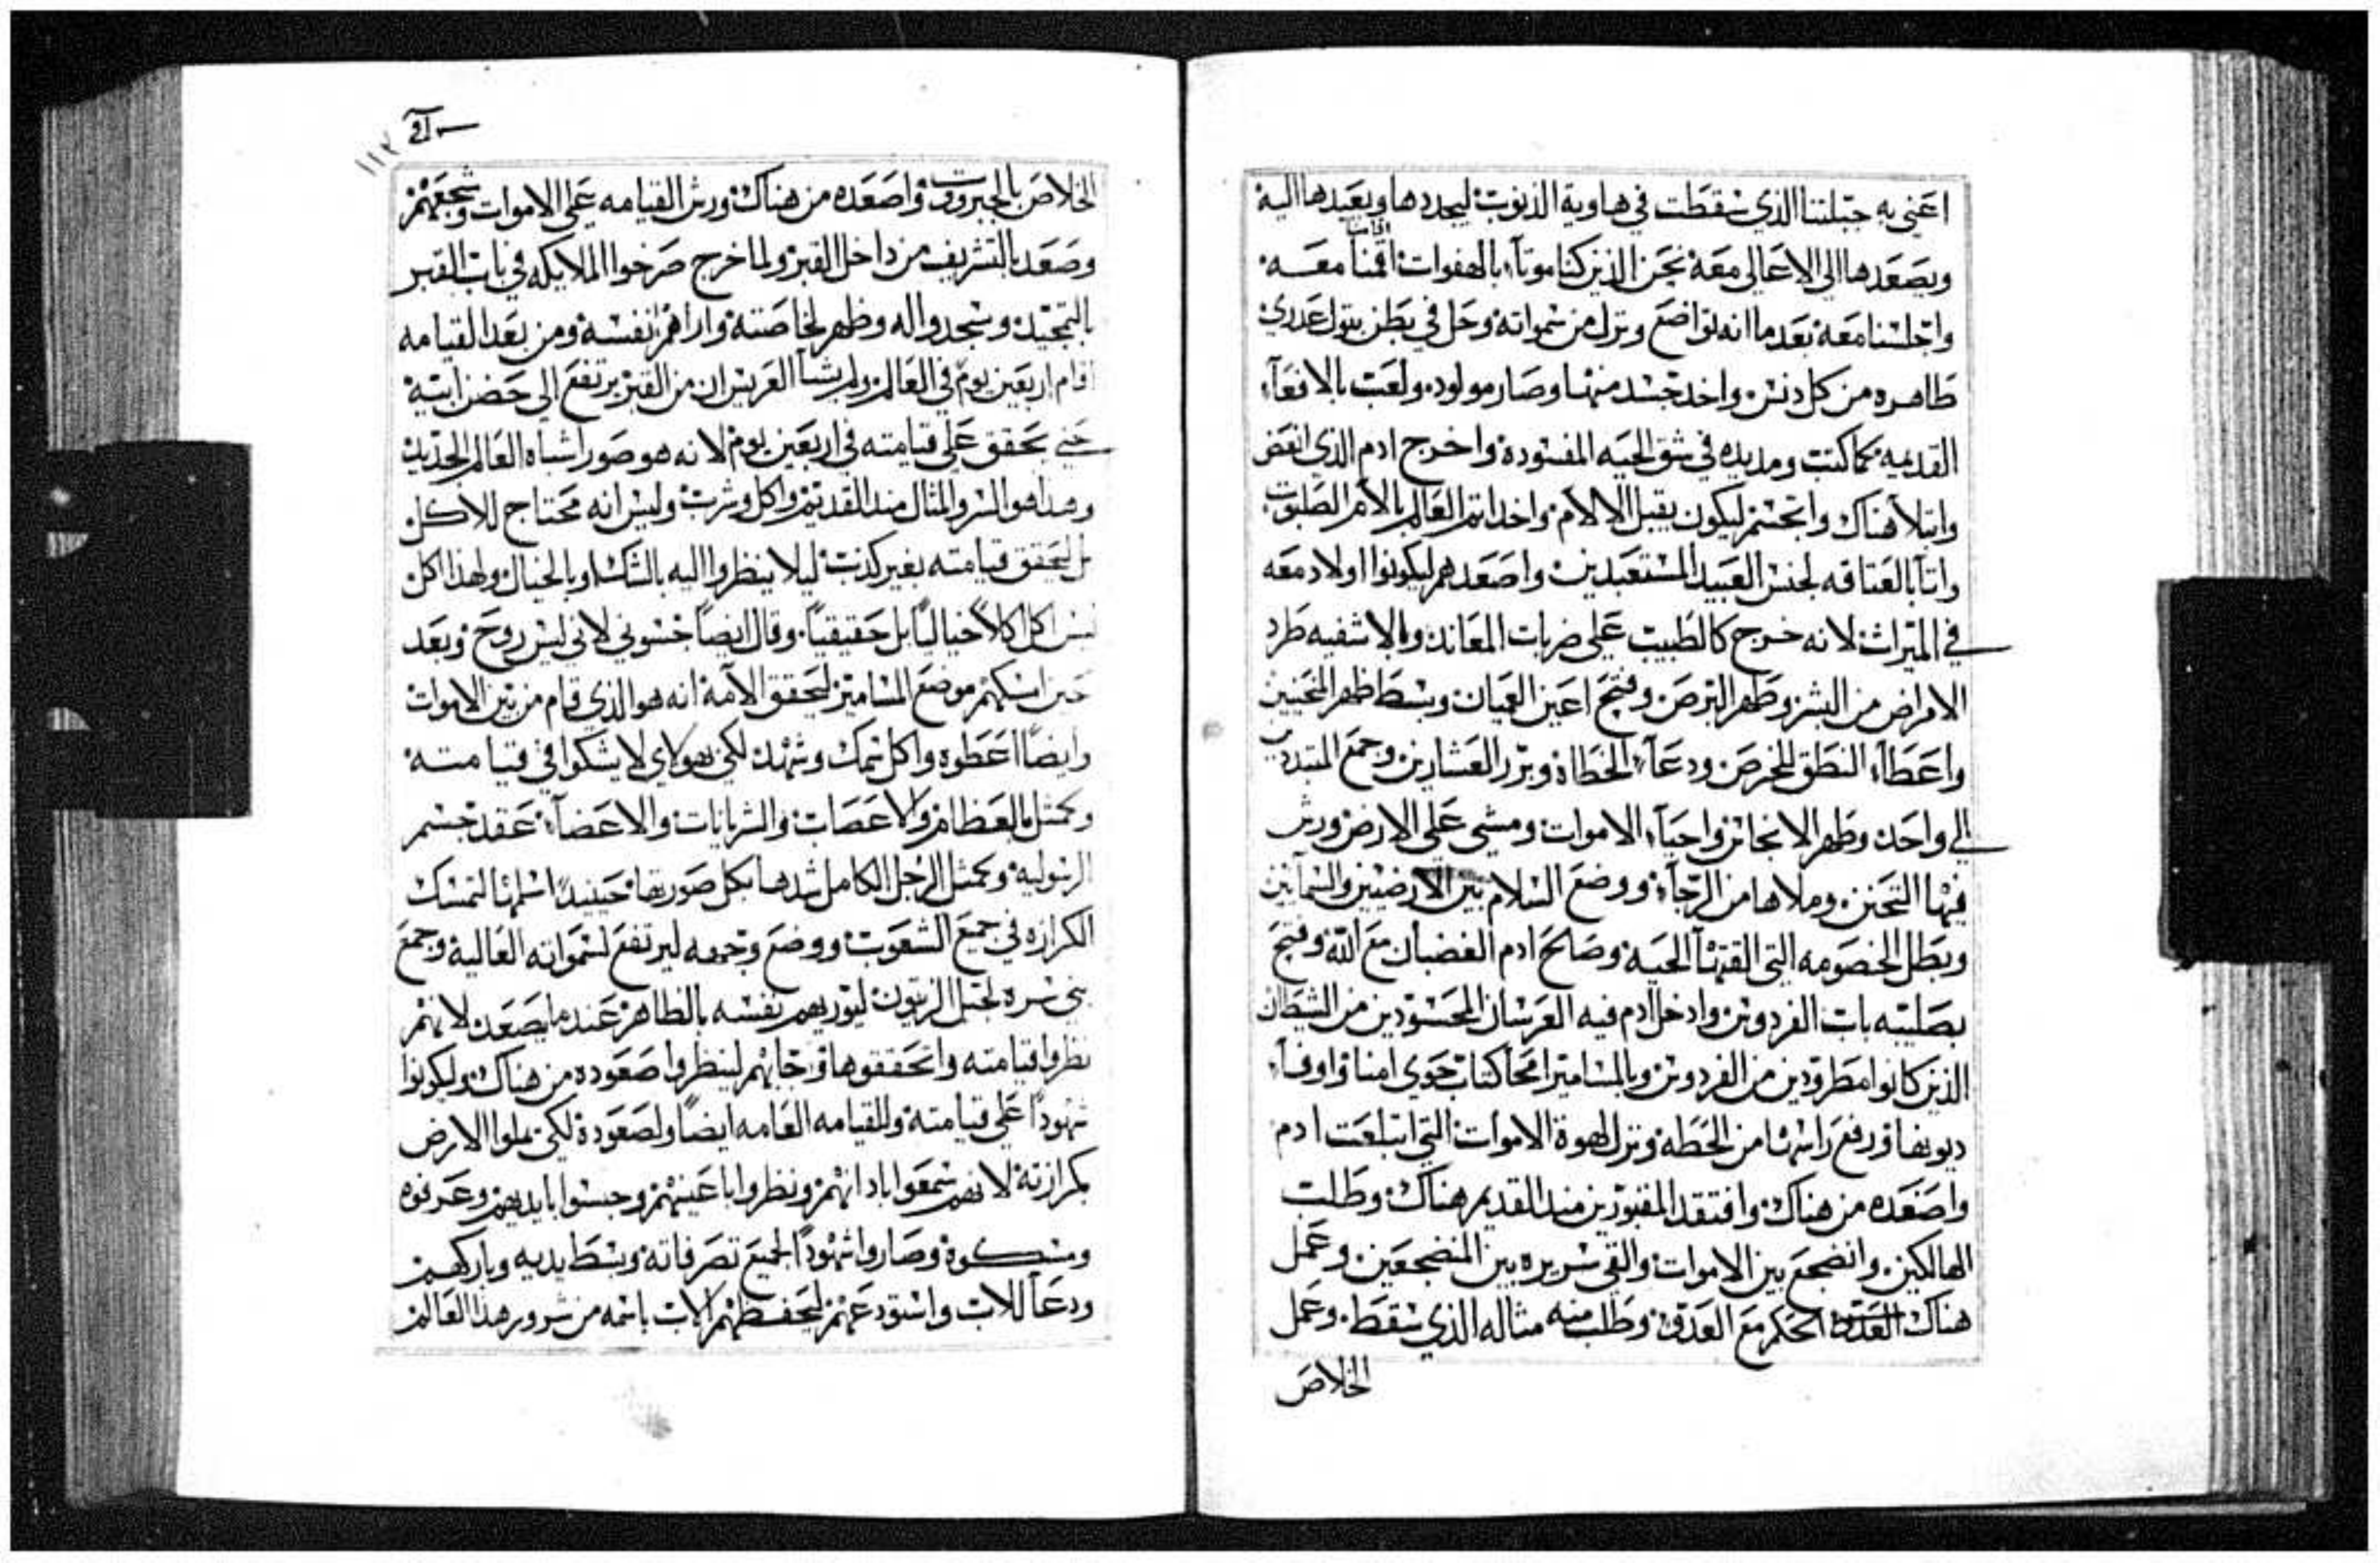 اعني به جبلتنا الذي سقطت في هاوية الذنوب ليجددها ويعيدها اليه
ويصعدها الي الاعالي معه نحن الذين كنا موتآ بالهفوات اقمنا معه
واجلسنا معه بعد ما انه تواضع ونزل من سمواته وحل في بطن بتول عدري
طاهره من كل دنس واخد جسد منها وصار مولود ولعب بالافعآ
القديمه كما كتب ومد يده في شق الحيه المفسوده واخرج ادم الذي انعض
وابتلآ هناك واتجسم ليكون يقبل الالام واخد اتم العالم بالام الصلبوت
واتآ بالعتاقه لجنس العبيد المستعبدين واصعدهم ليكونوا اولاد معه
في الميراث لانه خرج كالطبيب علي ضربات المعاند وبالاشفيه طرد
الامراض من البشر وطهر البرص وفتح اعين العميان وبسط ظهر المنحنيين
واعطآ النطق للخرص ودعآ الخطاه وبرر العشارين وجمع المتبددين
الي واحد وطهر الانجاس واحيآ الاموات ومشي علي الارض ورش
فيها التحنن وملاها من الرجآ ووضع السلام بين الارضيين والسمآيين
وبطل الخصومه التي القتهآ الحيه وصالح ادم الغضبان مع الله وفتح
بصليبه باب الفردوس وادخل ادم فيه العرسان المحسودين من الشيطان
الذين كانوا مطرودين من الفردوس وبالمسامير امحا كتاب حوي امنا واوفآ
ديونها ورفع راسها من الخطه ونزل لهوة الاموات التي ابتلعت ادم
واصعده من هناك وافتقد المقبورين مند القديم هناك وطلب
الهالكين وانضجع بين الاموات والقي سريره بين المنضجعين وعمل
هناك العدو الحكم مع العدو وطلب منه مثاله الذي سقط وعمل
الخلاص
١١٢
الخلاص بالجبروت واصعده من هناك ورش القيامه علي الاموات وشجعهم
وصعد بالتشريف من داخل القبر ولما خرج صرخوا الملايكه في باب القبر
بالتمجيد وسجدوا له وظهر لخاصته واراهم نفسه ومن بعد القيامه
اقام اربعين يوم في العالم ولم يشآ العريس ان من القبر يرتفع الي حضن ابيه
حتي يحقق علي قيامته في اربعين يوم لانه هو صور اشباه العالم الجديد
وهدا هو السر والمثال مند القديم واكل وشرب وليس انه محتاج للاكل
بل ليحقق قيامته بغير كذب ليلا ينظروا اليه بالشك او بالخيال ولهذا اكل
ليس اكل اكلاً خيالياً بل حقيقياً وقال ايضاً جسوني لاني ليس روح وبعد
حين امسكهم موضع المسامير ليحقق الامه انه هو الذي قام من بين الاموات
وايضاً اعطوه واكل سمك وشهد لكي هولاي لا يشكوا في قيامته
وكمثل بالعظام والاعصاب والشريانات والاعضآ عقد جسم
الرسوليه وكمثل الرجل الكامل شدها بكل صورتها حينيد اسلمها لتمسك
الكرازه في جميع الشعوب ووضع وجهه ليرتفع لسمواته العاليه وجمع
بني سره لجبل الزيتون ليوريهم نفسه بالظاهر عند ما يصعد لانهم
نظروا قيامته واتحققوها وجابهم لينظروا صعوده من هناك وليكونوا
شهوداً علي قيامته وللقيامه العامه ايضاً ولصعوده لكي يملوا الارض
بكرازته لانهم سمعوا بادانهم ونظروا باعينهم وجسوا بايديهم وعرفوه
ومسكوه وصاروا شهوداً لجميع تصرفاته وبسط يديه وباركهم
ودعآ للاب واستودعهم ليحفظهم الاب باسمه من شرور هذا العالم